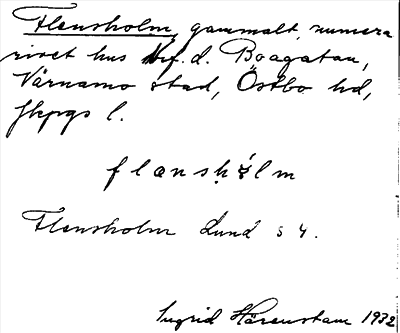 Flensholm, gammalt, numera
rivet hus d. Boagatan,
Värnamo stad, Östbo hd,
Jkpgs l.
flænshólm
Flensholm Lund s 4.
Ingrid Härenstam 1932